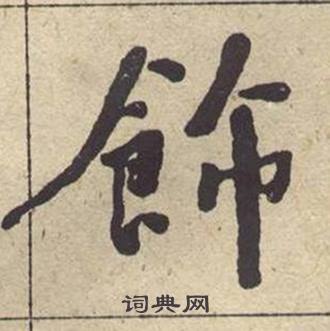 飾
词典网